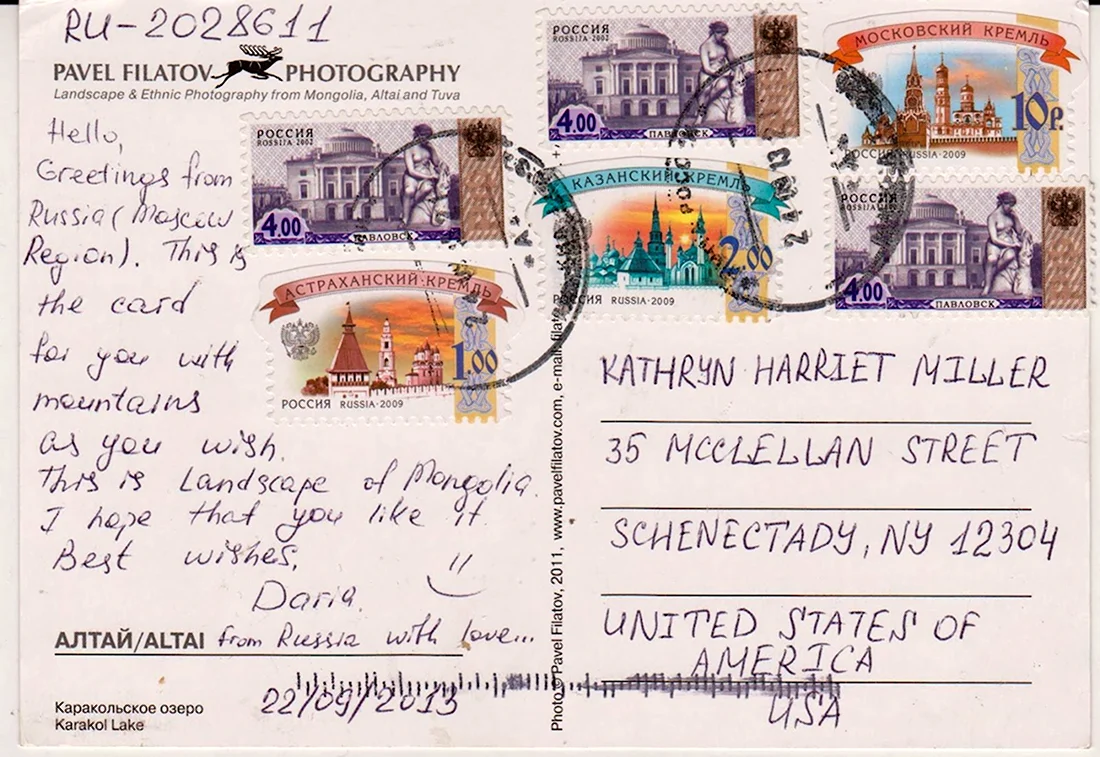 RU-2028611
PAVEL FILATOV PHOTOGRAPHY
Landscape & Ethnic Photography from Mongolia, Altai and Tuva
Hello,
Greetings from
Russia (Moscow
Region). This is
the card
for you with
mountains
as you wish.
This is Landscape of Mongolia.
I hope that you like it.
Best wishes,
Daria.
АЛТАЙ/ALTAI from Russia with love...
22/09/2013
Каракольское озеро
Karakol Lake
РОССИЯ
ROSSIJA 2002
4.00
ПАВЛОВСК
АСТРАХАНСКИЙ КРЕМЛЬ
1.00
РОССИЯ RUSSIA·2009
РОССИЯ
ROSSIJA 2002
4.00
ПАВЛОВСК
КАЗАНСКИЙ КРЕМЛЬ
2.00
РОССИЯ RUSSIA·2009
МОСКОВСКИЙ КРЕМЛЬ
10р.
РОССИЯ RUSSIA·2009
РОССИЯ
ROSSIJA 2002
4.00
ПАВЛОВСК
Photo © Pavel Filatov, 2011, www.pavelfilatov.com, e-mail: filato
KATHRYN HARRIET MILLER
35 MCCLELLAN STREET
SCHENECTADY, NY 12304
UNITED STATES OF
AMERICA
USA